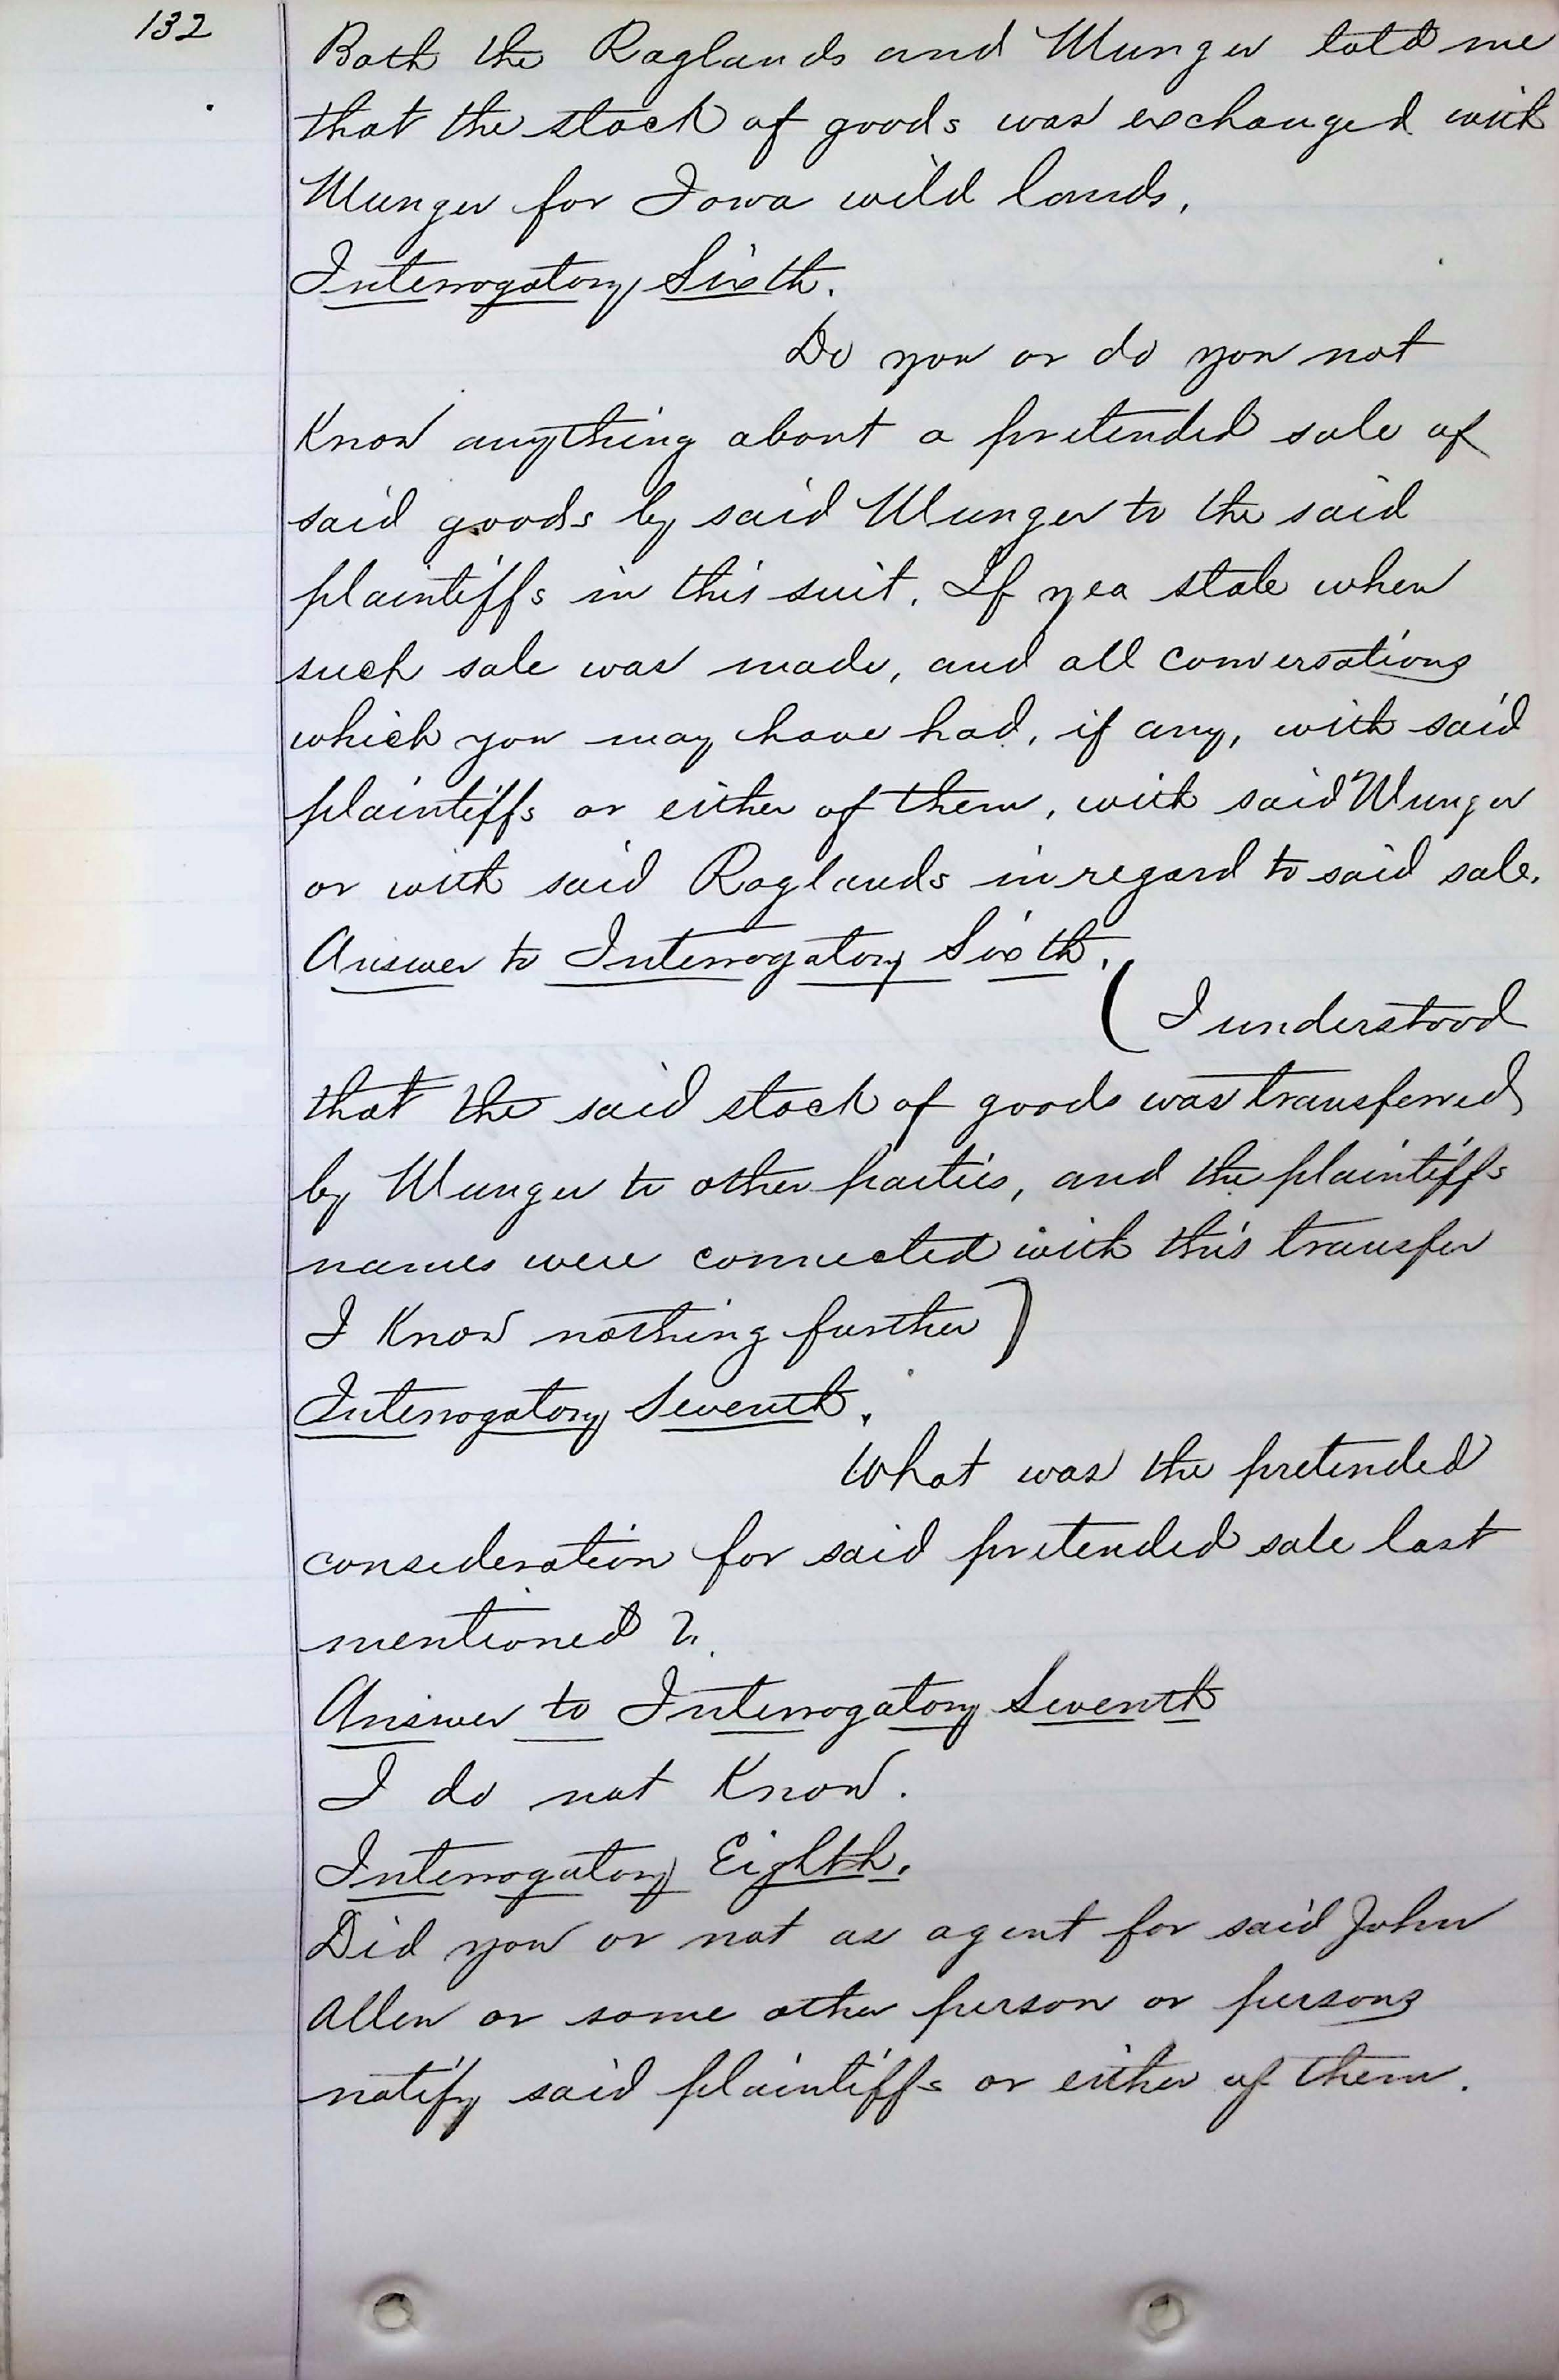 132
Both the Raglands and Munger told me
that the stock of goods was exchanged with
Munger for Iowa wild lands.
Interrogatory Sixth.
Do you or do you not
Know anything about a pretended sale of
said goods by said Munger to the said
plaintiffs in this suit. If yea state when
such sale was made, and all conversations
which you may have had, if any, with said
plaintiffs or either of them, with said Munger
or with said Raglands in regard to said sale.
Answer to Interrogatory Sixth.
( I understood
that the said stock of goods was transferred
by Munger to other parties, and the plaintiffs
names were connected with this transfer
I Know nothing further )
Interrogatory Seventh.
What was the pretended
consideration for said pretended sale last
mentioned ?
Answer to Interrogatory Seventh
I do not Know.
Interrogatory Eighth.
Did you or not as agent for said John
Allen or some other person or persons
notify said plaintiffs or either of them.